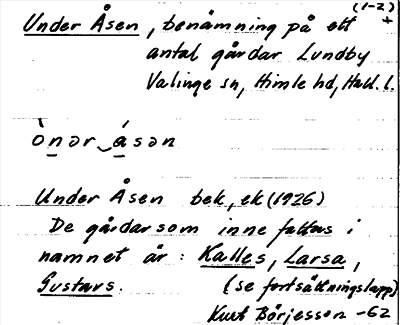 (1-2)
Under Åsen, benämning på ett +
antal gårdar Lundby
Valinge sn, Himle hd, Hall. l.
ò̱nər‿á̱sən
Under Åsen bek, ek (1926)
De gårdar som inne fattas i
namnet är: Kalles, Larsa,
Gustavs. (se fortsättningslapp)
Kurt Börjesson -62